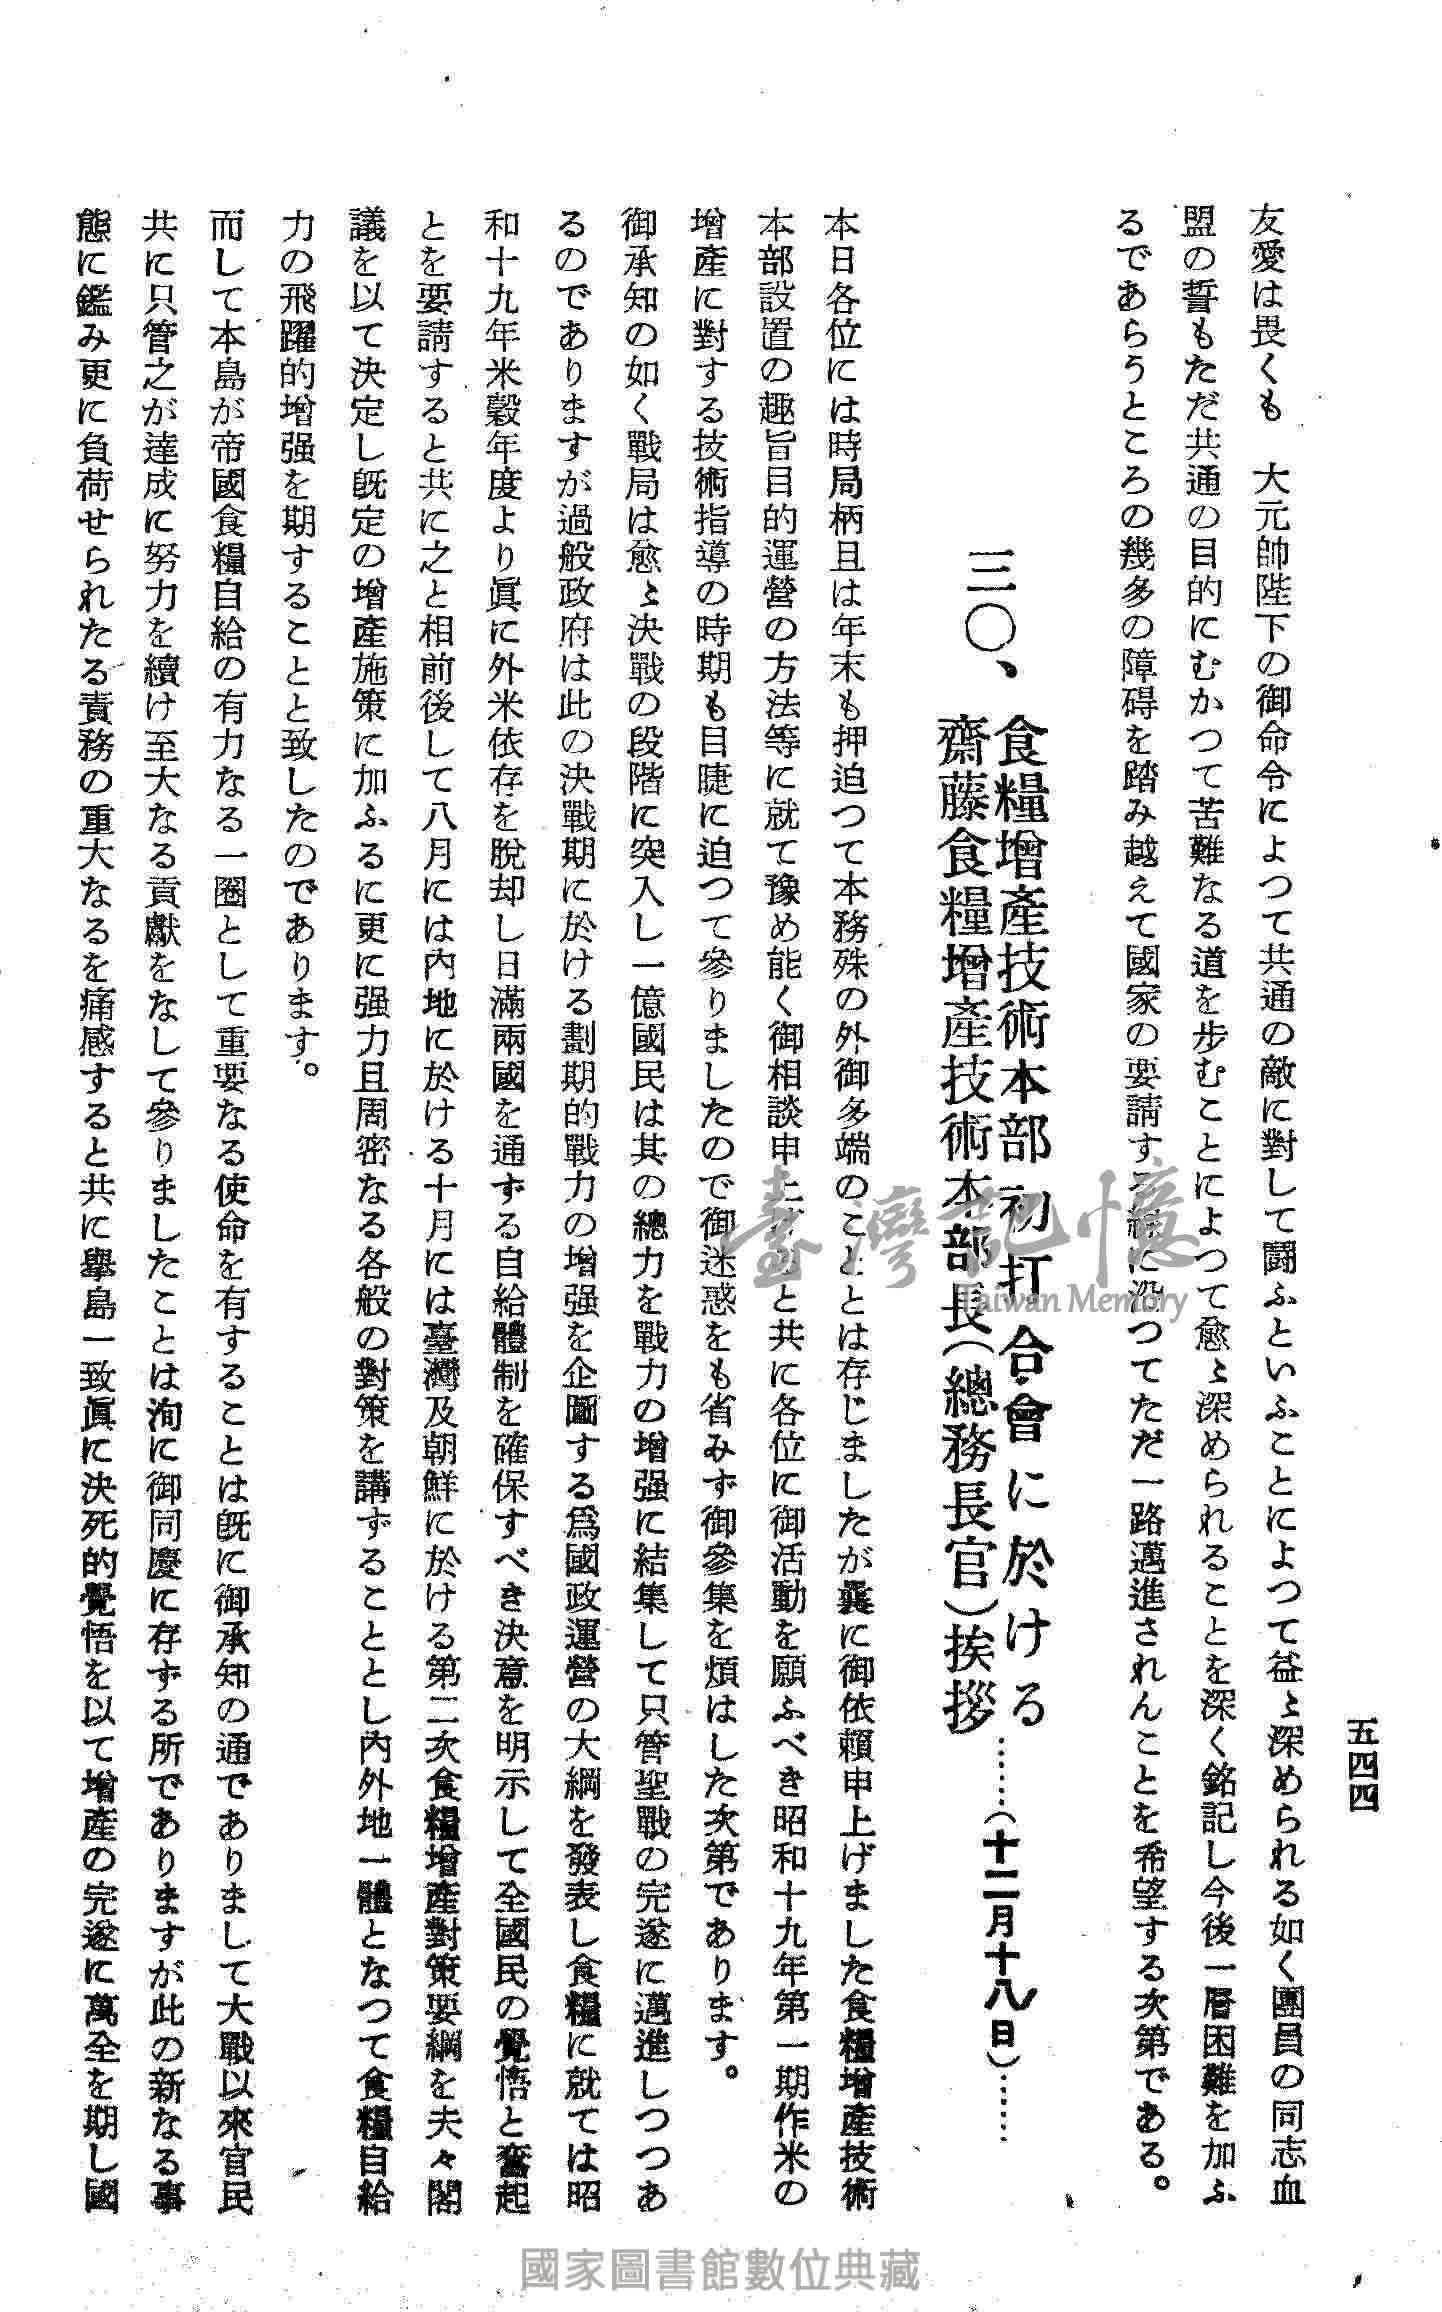 友愛は畏くも　大元帥陛下の御命令によつて共通の敵に對して鬪ふといふことによつて益〻深められる如く團員の同志血
盟の誓もただ共通の目的にむかつて苦難なる道を歩むことによつて愈〻深められることを深く銘記し今後一層困難を加ふ
るであらうところの幾多の障碍を踏み越えて國家の要請する線に沿つてただ一路邁進されんことを希望する次第である。
三〇、食糧增產技術本部初打合會に於ける
齋藤食糧增產技術本部長（總務長官）挨拶……（十二月十八日）……
本日各位には時局柄且は年末も押迫つて本務殊の外御多端のこととは存じましたが曩に御依賴申上げました食糧增產技術
本部設置の趣旨目的運營の方法等に就て豫め能く御相談申上と共に各位に御活動を願ふべき昭和十九年第一期作米の
增產に對する技術指導の時期も目睫に迫つて參りましたので御迷惑をも省みず御參集を煩はした次第であります。
御承知の如く戰局は愈〻決戰の段階に突入し一億國民は其の總力を戰力の增强に結集して只管聖戰の完遂に邁進しつつあ
るのでありますが過般政府は此の決戰期に於ける劃期的戰力の增强を企圖する爲國政運營の大綱を發表し食糧に就ては昭
和十九年米穀年度より眞に外米依存を脫却し日滿兩國を通ずる自給體制を確保すべき決意を明示して全國民の覺悟と奮起
とを要請すると共に之と相前後して八月には內地に於ける十月には臺灣及朝鮮に於ける第二次食糧增產對策要綱を夫々閣
議を以て決定し旣定の增產施策に加ふるに更に强力且周密なる各般の對策を講ずることとし內外地一體となつて食糧自給
力の飛躍的增强を期することと致したのであります。
而して本島が帝國食糧自給の有力なる一圈として重要なる使命を有することは旣に御承知の通でありまして大戰以來官民
共に只管之が達成に努力を續け至大なる貢獻をなして參りましたことは洵に御同慶に存ずる所でありますが此の新なる事
態に鑑み更に負荷せられたる責務の重大なるを痛感すると共に擧島一致眞に決死的覺悟を以て增產の完遂に萬全を期し國
五四四
臺灣記憶
Taiwan Memory
國家圖書館數位典藏